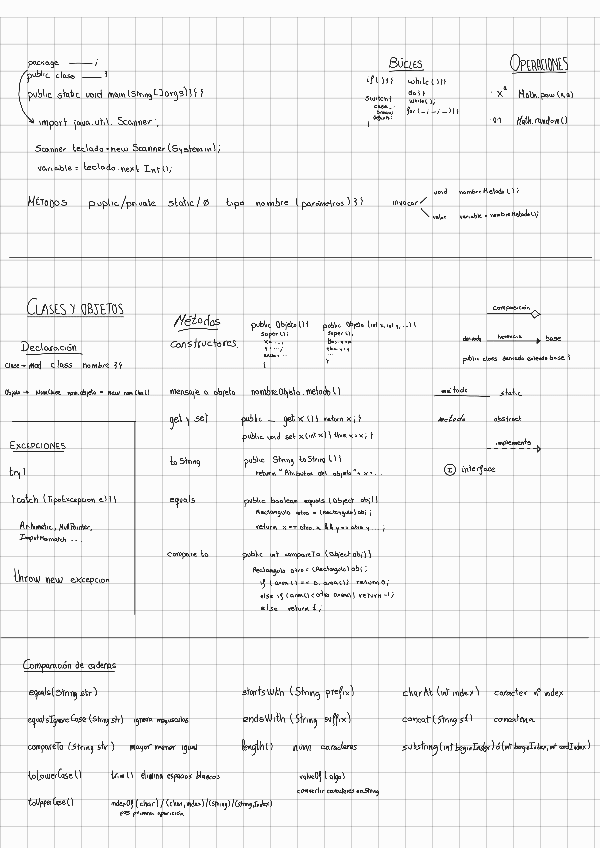 package ——— ;
public class ——— {
public static void main (String [] args) { } }
import java.util. Scanner ;
Scanner teclado = new Scanner (System.in);
variable = teclado.next Int();
BUCLES
if () { }
switch {
case_:
break;
default:
}
while () { }
do { }
while();
for (_;_;_) { }
OPERACIONES
x² Math.pow (x,a)
Math.random()
METODOS public/private static/ø tipo nombre (parámetros) { }
invocar
void nombreMetodo();
valor variable = nombreMetodo();
CLASES Y OBJETOS
Declaración
Clase → mod class nombre { }
Objeto → NomClase nom.objeto = new nomClas()
EXCEPCIONES
try {
} catch (TipoExcepcion e) { }
Arithmetic, NullPointer,
InputMismatch ...
throw new excepcion
Métodos
constructores
public Objeto () {
super ();
}
public Objeto (int x, int y, ...) {
super ();
}
mensaje a objeto nombreObjeto.metodo()
get y set public _ get x () { return x; }
public void set x (int x) { this.x = x; }
toString public String toString () {
return "Atributos del objeto" + x + ...
equals public boolean equals (Object obj) {
Rectangulo otro = (Rectangulo) obj ;
return x == otro.x && y == otro.y ... ;
compare to public int compareTo (Object obj) {
Rectangulo otro = (Rectangulo) obj ;
if (area() == o.area()) return 0;
else if (area() < otro.area()) return -1;
else return 1;
composición
derivada herencia base
public class derivada extends base {
metodo static
metodo abstract
implements
I interface
Comparación de cadenas
equals (String str)
equalsIgnoreCase (String str) ignora mayusculas
compareTo (String str) mayor menor igual
toLowerCase ()
toUpperCase ()
trim () elimina espacios blancos
indexOf (char) / (char, index) / (String) / (String, index)
pos primera aparición
startsWith (String prefix)
endsWith (String suffix)
length () num caracteres
valueOf (algo)
convertir caracteres en String
charAt (int index) caracter nº index
concat (String s1) concatena
substring (int beginIndex) ó (int beginIndex, int endIndex)